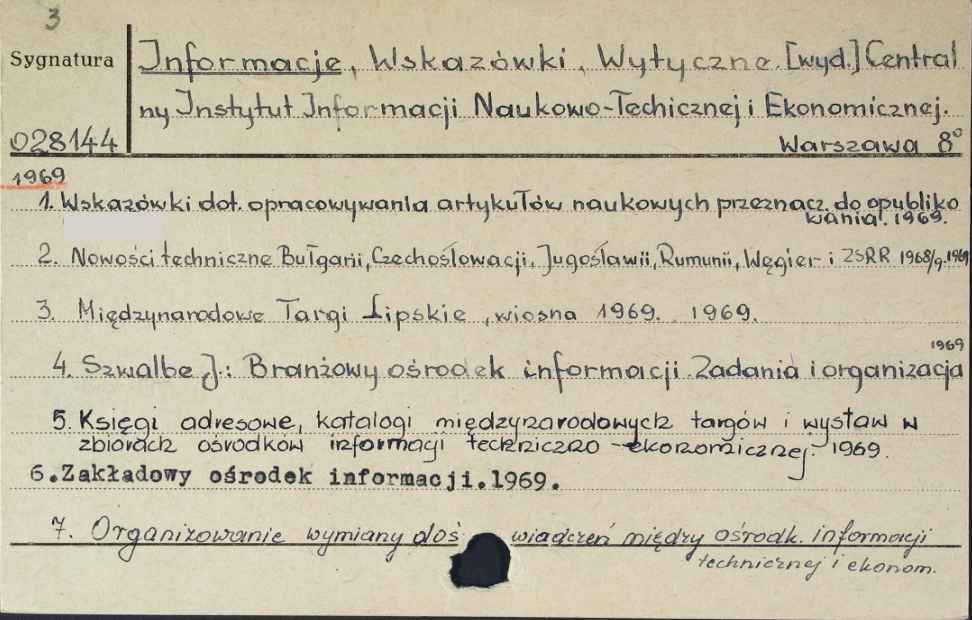 3
Sygnatura
Informacje, Wskazówki, Wytyczne. [wyd.] Central
ny Instytut Informacji Naukowo-Techicznej i Ekonomicznej.
028144
Warszawa 8°
1969
1. Wskazówki dot. opracowywania artykułów naukowych przeznacz. do opubliko
wania. 1969.
2. Nowości techniczne Bułgarii, Czechosłowacji, Jugosławii, Rumunii, Węgier i ZSRR 1968/9. 1969
3. Międzynarodowe Targi Lipskie, wiosna 1969. 1969.
1969
4. Szwalbe J.: Branżowy ośrodek informacji Zadania i organizacja
5. Księgi adresowe, katalogi międzynarodowych targów i wystaw w
zbiorach ośrodków informacji techniczno-ekonomicznej. 1969.
6. Zakładowy ośrodek informacji. 1969.
7. Organizowanie wymiany doś wiadczeń między ośrodk. informacji
technicznej i ekonom.